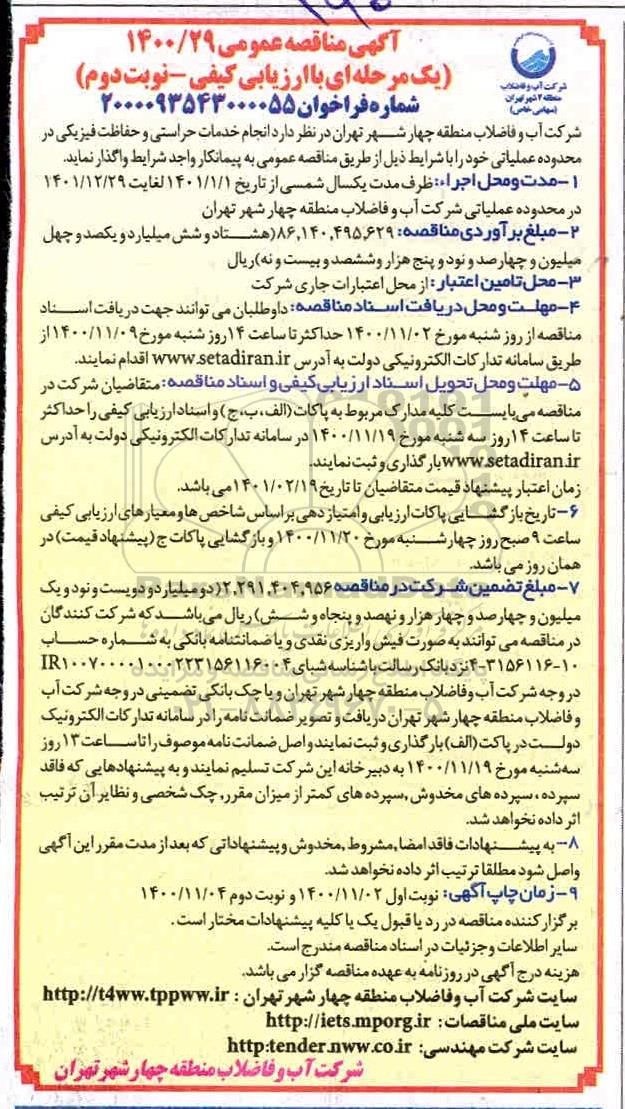 آگهی مناقصه عمومی ۱۴۰۰/۲۹
(یک مرحله‌ای با ارزیابی کیفی – نوبت دوم)
شماره فراخوان ۲۰۰۰۰۹۳۵۴۳۰۰۰۰۵۵
شرکت آب و فاضلاب
منطقه ۴ شهر تهران
(سهامی خاص)
شرکت آب و فاضلاب منطقه چهار شهر تهران در نظر دارد انجام خدمات حراستی و حفاظت فیزیکی در
محدوده عملیاتی خود را با شرایط ذیل از طریق مناقصه عمومی به پیمانکار واجد شرایط واگذار نماید.
۱–مدت و محل اجراء: ظرف مدت یکسال شمسی از تاریخ ۱۴۰۱/۱/۱ لغایت ۱۴۰۱/۱۲/۲۹
در محدوده عملیاتی شرکت آب و فاضلاب منطقه چهار شهر تهران
۲–مبلغ برآوردی مناقصه: ۸۶,۱۴۰,۴۹۵,۶۲۹ (هشتاد و شش میلیارد و یکصد و چهل
میلیون و چهارصد و نود و پنج هزار و ششصد و بیست و نه) ریال
۳–محل تامین اعتبار: از محل اعتبارات جاری شرکت
۴–مهلت و محل دریافت اسناد مناقصه: داوطلبان می توانند جهت دریافت اسناد
مناقصه از روز شنبه مورخ ۱۴۰۰/۱۱/۰۲ حداکثر تا ساعت ۱۴ روز شنبه مورخ ۱۴۰۰/۱۱/۰۹ از
طریق سامانه تدارکات الکترونیکی دولت به آدرس www.setadiran.ir اقدام نمایند.
۵–مهلت و محل تحویل اسناد ارزیابی کیفی و اسناد مناقصه: متقاضیان شرکت در
مناقصه می بایست کلیه مدارک مربوط به پاکات (الف، ب، ج) و اسناد ارزیابی کیفی را حداکثر
تا ساعت ۱۴ روز سه شنبه مورخ ۱۴۰۰/۱۱/۱۹ در سامانه تدارکات الکترونیکی دولت به آدرس
www.setadiran.ir بارگذاری و ثبت نمایند.
زمان اعتبار پیشنهاد قیمت متقاضیان تا تاریخ ۱۴۰۱/۰۲/۱۹ می باشد.
۶–تاریخ بازگشایی پاکات ارزیابی و امتیازدهی بر اساس شاخص ها و معیارهای ارزیابی کیفی
ساعت ۹ صبح روز چهارشنبه مورخ ۱۴۰۰/۱۱/۲۰ و بازگشایی پاکات ج (پیشنهاد قیمت) در
همان روز می باشد.
۷–مبلغ تضمین شرکت در مناقصه ۲,۲۹۱,۴۰۴,۹۵۶ (دو میلیارد و دویست و نود و یک
میلیون و چهارصد و چهار هزار و نهصد و پنجاه و شش) ریال می باشد که شرکت کنندگان
در مناقصه می توانند به صورت فیش واریزی نقدی و یا ضمانتنامه بانکی به شماره حساب
۱۰-۳۱۵۶۱۱۶-۴ نزد بانک رسالت با شناسه شبای IR۱۰۰۷۰۰۰۰۱۰۰۰۲۲۳۱۵۶۱۱۶۰۰۴
در وجه شرکت آب و فاضلاب منطقه چهار شهر تهران و یا چک بانکی تضمینی در وجه شرکت آب
و فاضلاب منطقه چهار شهر تهران دریافت و تصویر ضمانت نامه را در سامانه تدارکات الکترونیک
دولت در پاکت (الف) بارگذاری و ثبت نمایند و اصل ضمانت نامه موصوف را تا ساعت ۱۳ روز
سه شنبه مورخ ۱۴۰۰/۱۱/۱۹ به دبیرخانه این شرکت تسلیم نمایند و به پیشنهادهایی که فاقد
سپرده ، سپرده های مخدوش ,سپرده های کمتر از میزان مقرر, چک شخصی و نظایر آن ترتیب
اثر داده نخواهد شد.
۸– به پیشنهادات فاقد امضا, مشروط ,مخدوش و پیشنهاداتی که بعد از مدت مقرر این آگهی
واصل شود مطلقا ترتیب اثر داده نخواهد شد.
۹–زمان چاپ آگهی: نوبت اول ۱۴۰۰/۱۱/۰۲ و نوبت دوم ۱۴۰۰/۱۱/۰۴
برگزار کننده مناقصه در رد یا قبول یک یا کلیه پیشنهادات مختار است .
سایر اطلاعات و جزئیات در اسناد مناقصه مندرج است.
هزینه درج آگهی در روزنامه به عهده مناقصه گزار می باشد.
سایت شرکت آب و فاضلاب منطقه چهار شهر تهران : http://t4ww.tppww.ir
سایت ملی مناقصات: http://iets.mporg.ir
سایت شرکت مهندسی: http:tender.nww.co.ir
شرکت آب و فاضلاب منطقه چهار شهر تهران